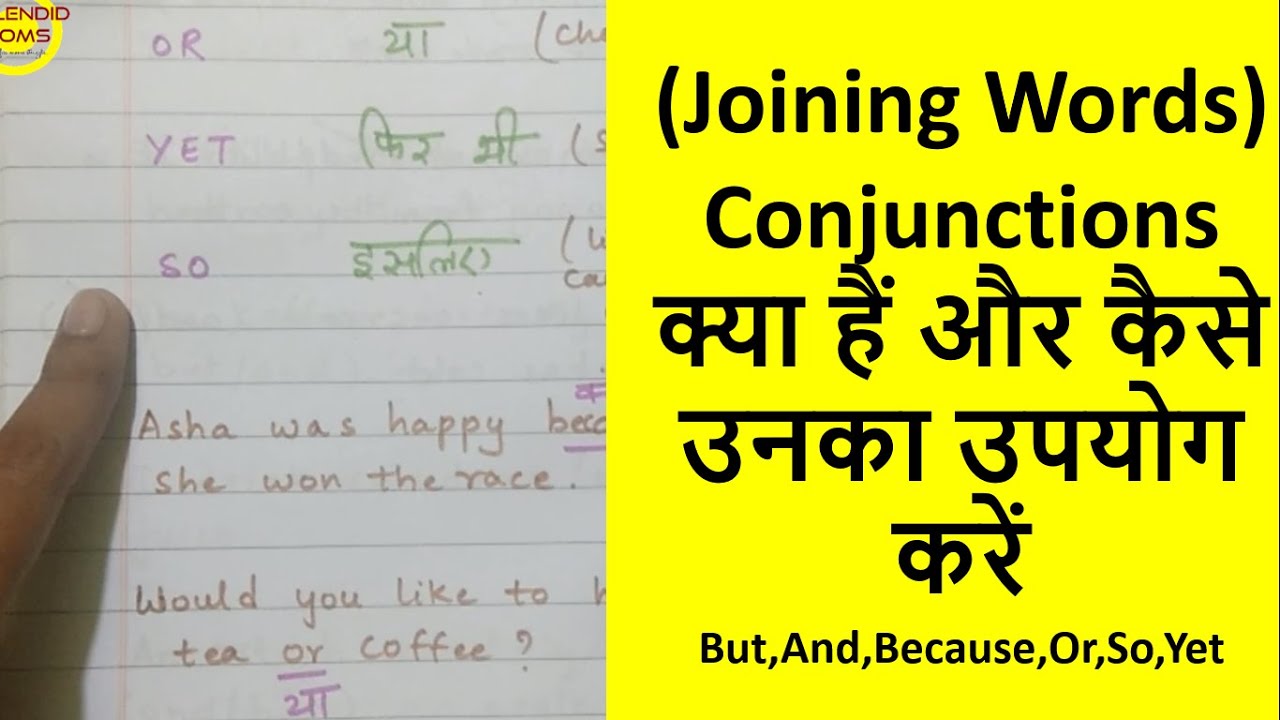 OR या
YET फिर भी
SO इसलिए
Asha was happy
she won the race.
Would you like to
tea or coffee?
या
(Joining Words)
Conjunctions
क्या हैं और कैसे
उनका उपयोग
करें
But,And,Because,Or,So,Yet